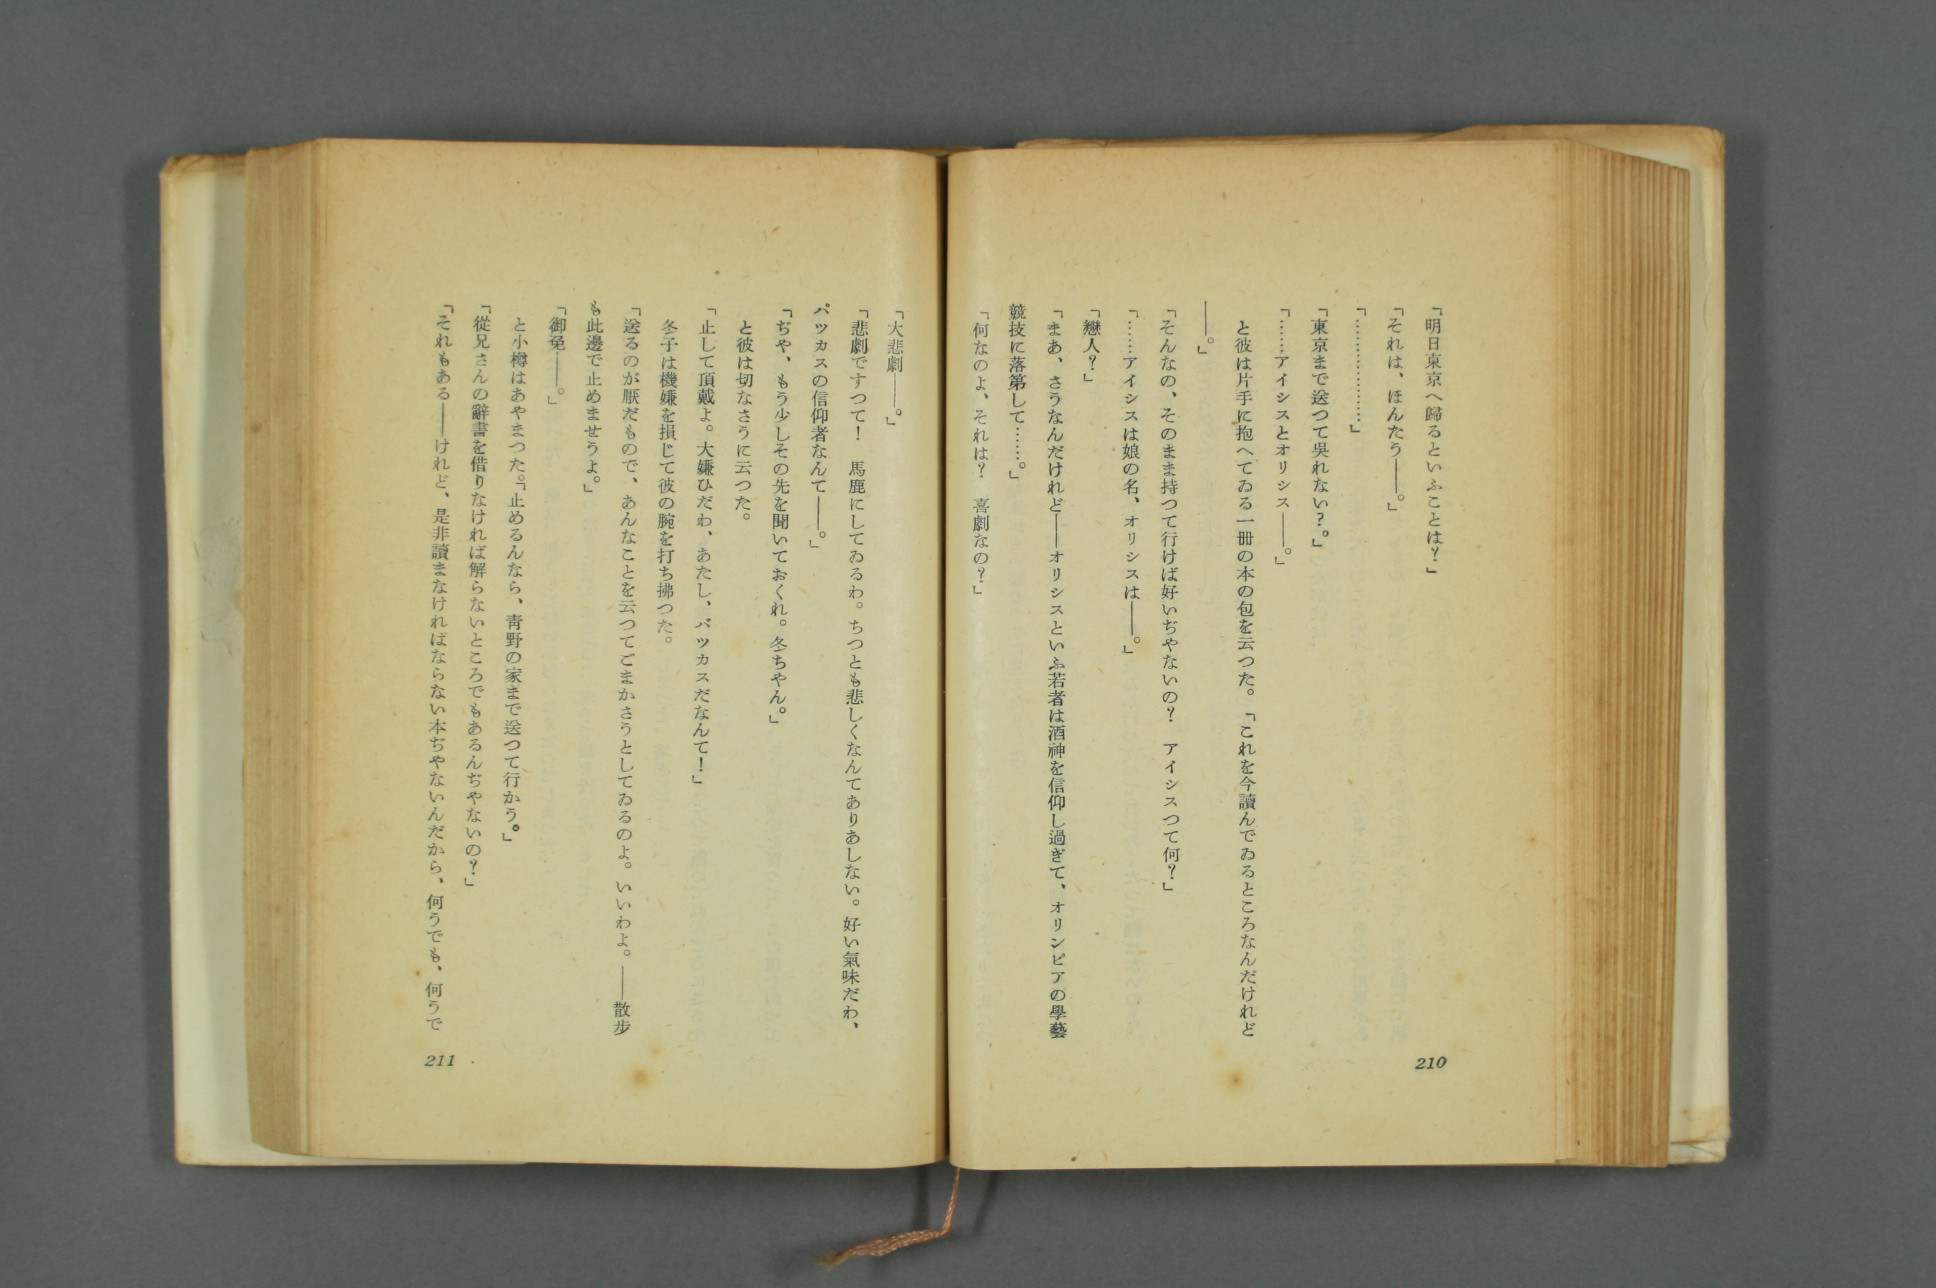 「明日東京へ歸るといふことは？」
「それは、ほんたう――。」
「………………」
「東京まで送つて吳れない？。」
「……アイシスとオリシス――。」
と彼は片手に抱へてゐる一冊の本の包を云つた。「これを今讀んでゐるところなんだけれど
――。」
「そんなの、そのまま持つて行けば好いぢやないの？　アイシスつて何？」
「……アイシスは娘の名、オリシスは――。」
「戀人？」
「まあ、さうなんだけれど――オリシスといふ若者は酒神を信仰し過ぎて、オリンピアの學藝
競技に落第して……。」
「何なのよ、それは？　喜劇なの？」
210
「大悲劇――。」
「悲劇ですつて！　馬鹿にしてゐるわ。ちつとも悲しくなんてありあしない。好い氣味だわ、
バツカスの信仰者なんて――。」
「ぢや、もう少しその先を聞いておくれ。冬ちやん。」
と彼は切なさうに云つた。
「止して頂戴よ。大嫌ひだわ、あたし、バツカスだなんて！」
冬子は機嫌を損じて彼の腕を打ち拂つた。
「送るのが厭だもので、あんなことを云つてごまかさうとしてゐるのよ。いいわよ。――散步
も此邊で止めませうよ。」
「御免――。」
と小樽はあやまつた。「止めるんなら、靑野の家まで送つて行かう。」
「從兄さんの辭書を借りなければ解らないところでもあるんぢやないの？」
「それもある――けれど、是非讀まなければならない本ぢやないんだから、何うでも、何うで
211